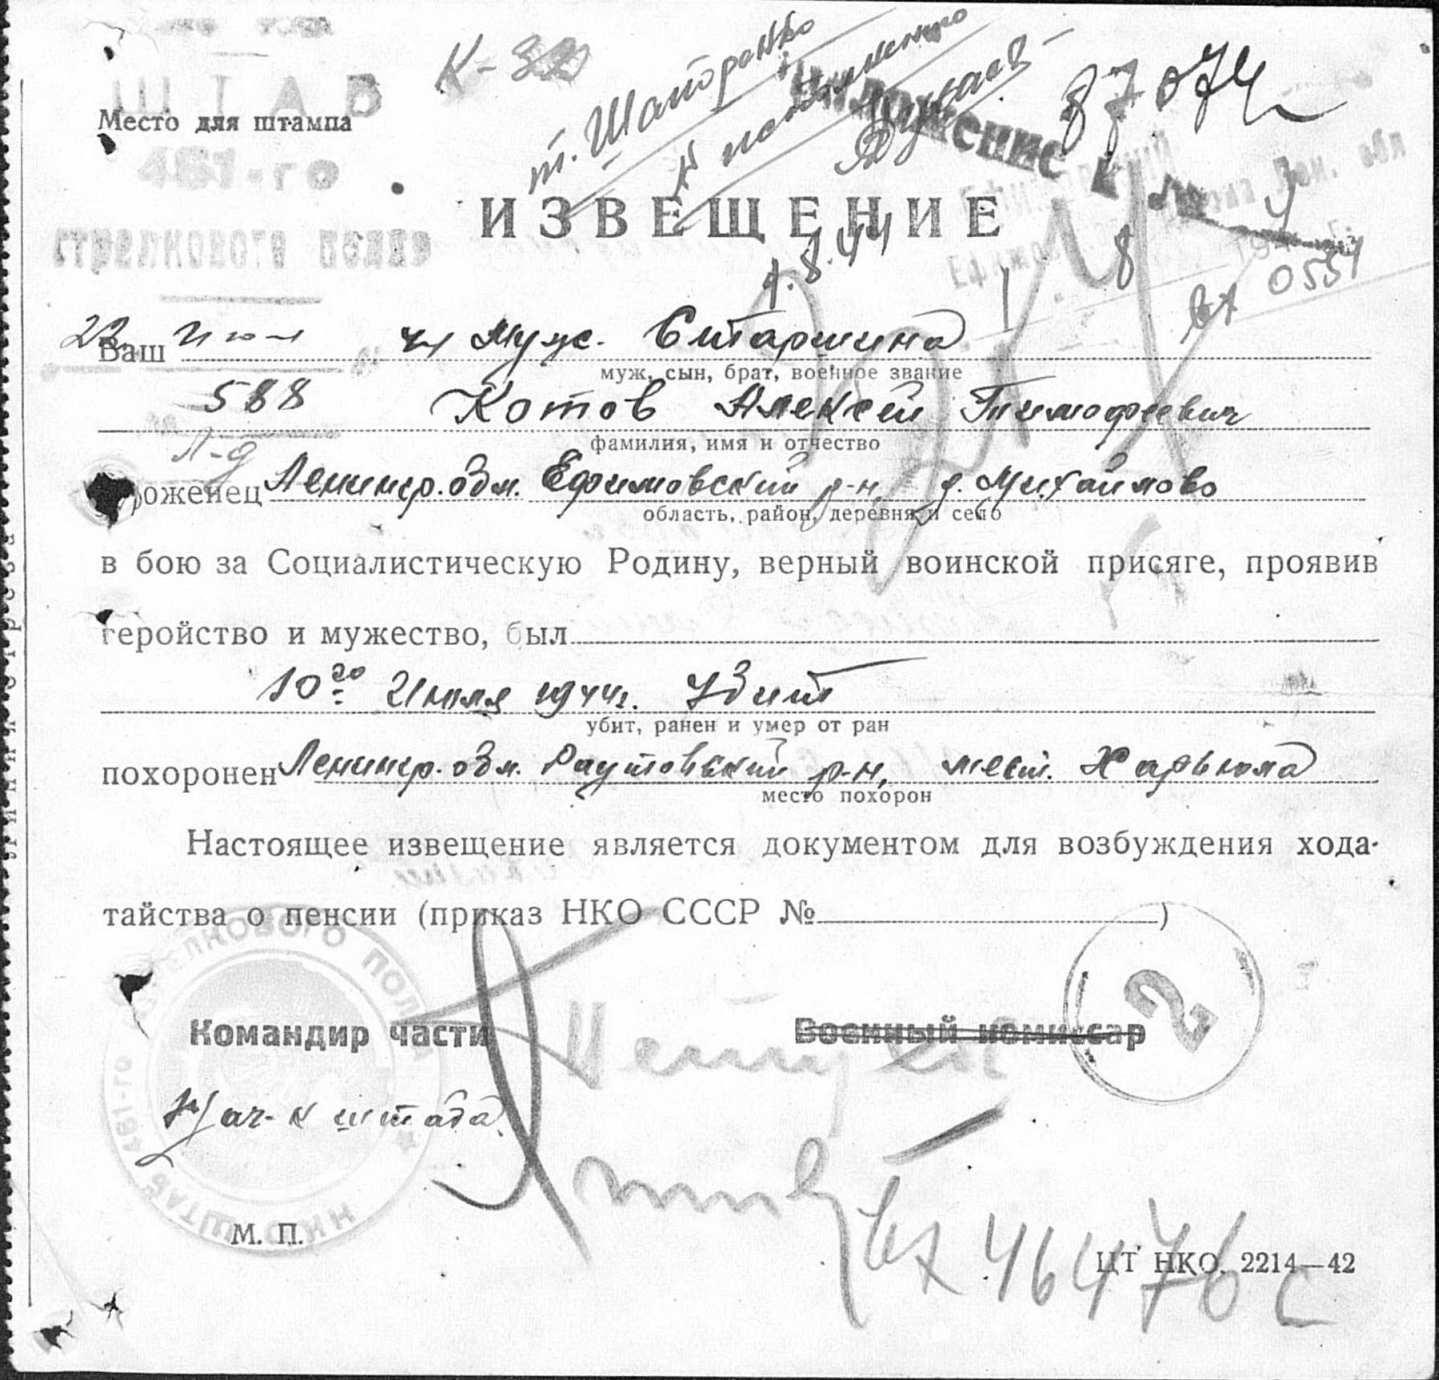 К-32
т. Шапоренко
к исполнению
87074
Приложение к
ШТАБ
Место для штампа
461-го
стрелкового полка
ИЗВЕЩЕНИЕ
1.8.44
8
вх 0551
22 июл
Ваш муж. Старшина
муж, сын, брат, военное звание
588
Котов Алексей Тимофеевич
фамилия, имя и отчество
Л-д
уроженец Ленингр. обл. Ефимовский р-н, д. Михайлово
область, район, деревня и село
в бою за Социалистическую Родину, верный воинской присяге, проявив
геройство и мужество, был
10го Июля 1944г. Убит
убит, ранен и умер от ран
похоронен Ленингр. обл. Раутовский р-н, мест. Харьюла
место похорон
Настоящее извещение является документом для возбуждения хода-
тайства о пенсии (приказ НКО СССР № )
2
Командир части
Военный комиссар
Нач-к штаба
СТРЕЛКОВОГО ПОЛКА
ШТАБ 461-го
НКО
М. П.
вх 46476с
ЦТ НКО. 2214—42